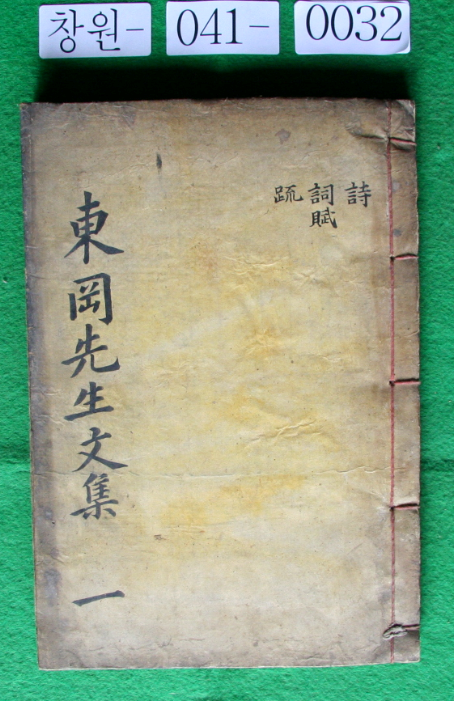 창원-041-0032
詩
詞賦
疏
東岡先生文集 一